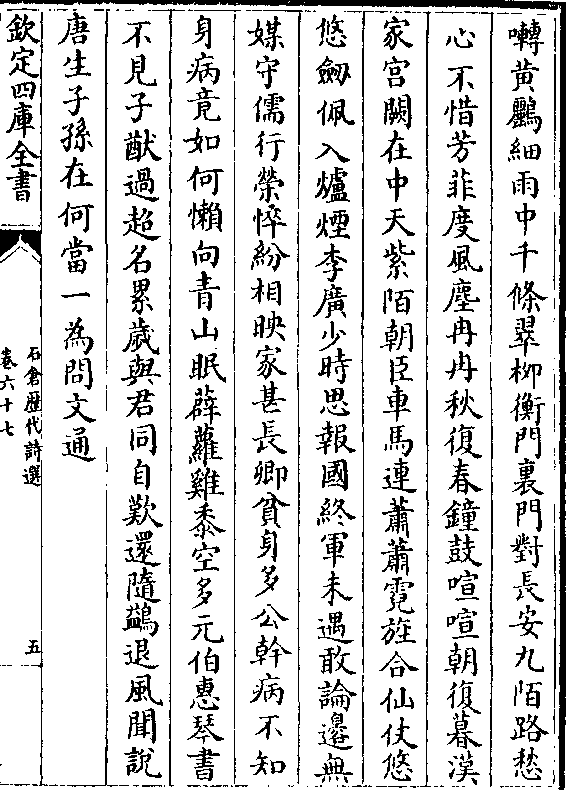 囀黃鸝細雨中千條翠柳衡門裏門對長安九陌路愁
心不惜芳菲度風塵冉冉秋復春鐘鼓喧喧朝復暮漢
家宮闕在中天紫陌朝臣車馬連蕭蕭霓旌合仙仗悠
悠劒佩入爐煙李廣少時思報國終軍未遇敢論邊無
媒守儒行榮悴紛相映家甚長卿貧身多公幹病不知
身病竟如何懶向青山眠薜蘿雞黍空多元伯惠琴書
不見子猷過超名累歲與君同自歎還隨鷁退風聞說
唐生子孫在何當一為問文通
欽定四庫全書
石倉歷代詩選
卷六十七
五